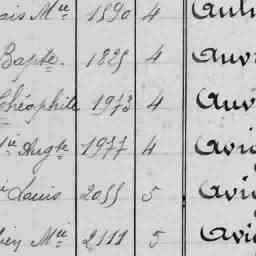 ais Mie 1590 4 Aub
Bapte. 1825 4 Auv
Théophile 1973 4 Auv
Augte 1977 4 Avi
Louis 2055 5 Avi
Mie 2111 5 Avi